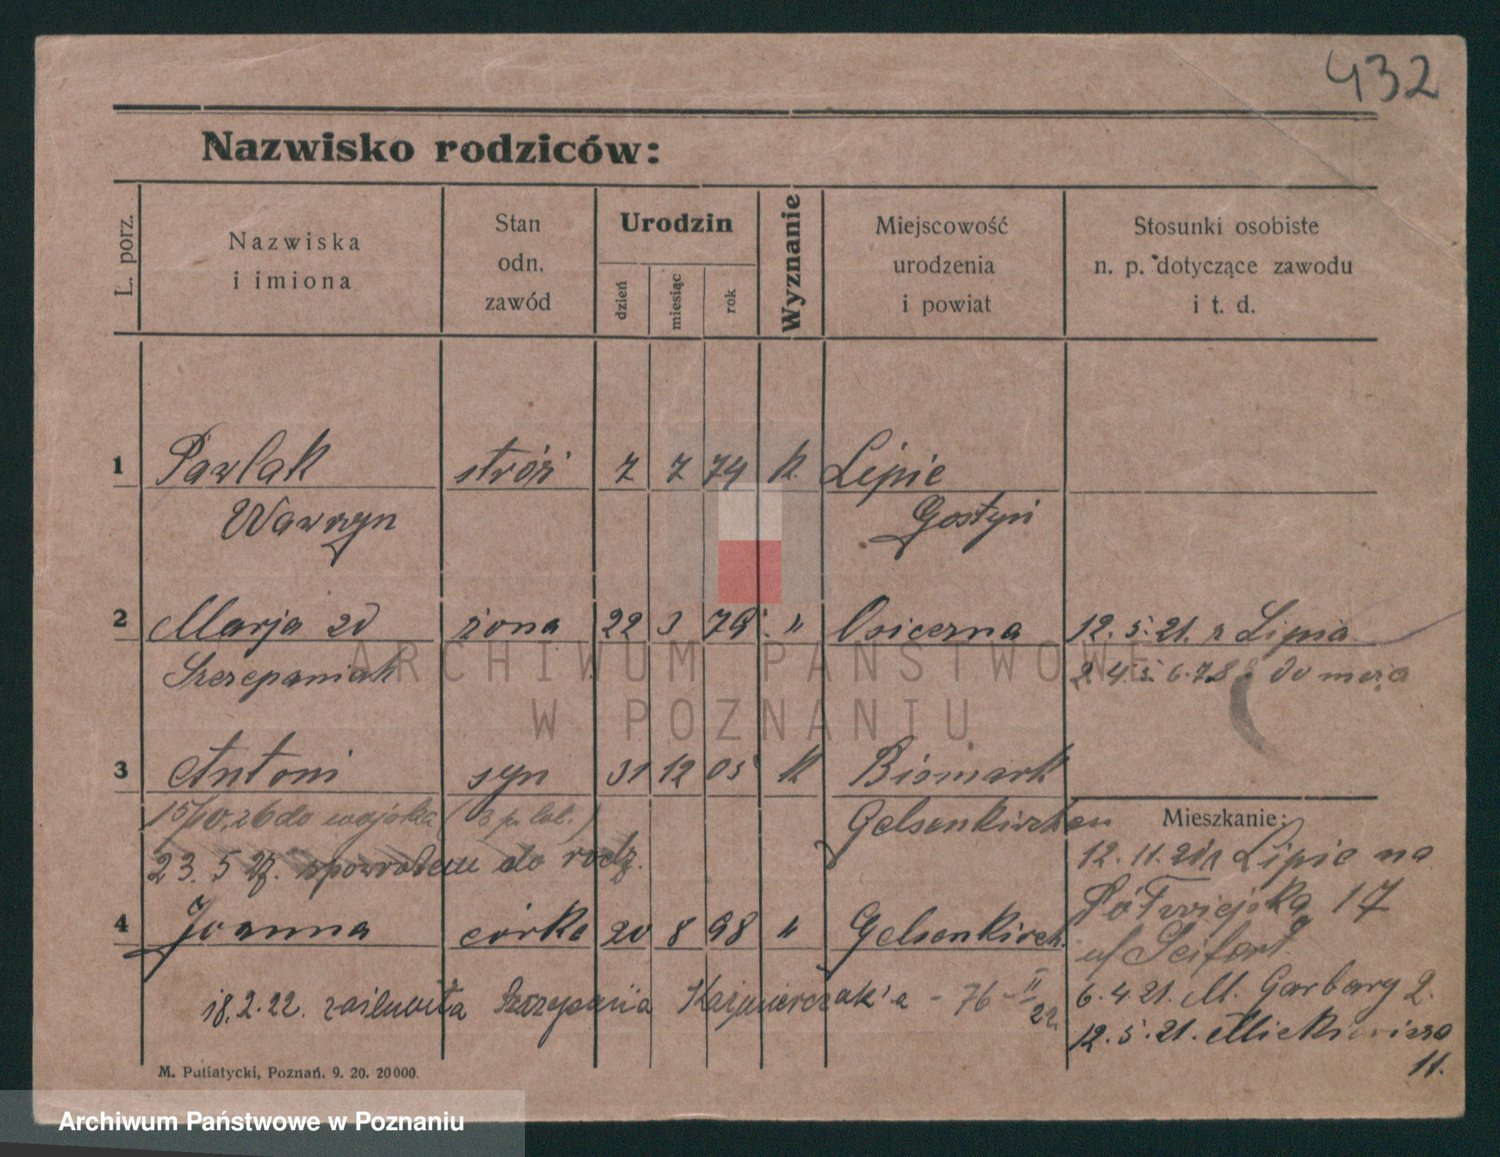 432
Nazwisko rodziców:
L. porz.
Nazwiska
i imiona
Stan
odn.
zawód
Urodzin
dzień
miesiąc
rok
Wyznanie
Miejscowość
urodzenia
i powiat
Stosunki osobiste
n. p. dotyczące zawodu
i t. d.
1 Pawlak stróż 7 7 74 k. Lipie
Wawrzyn Gostyń
2 Marja zd żona 22 3 79 " Osieczna 12.5.21. z Lipia
Szczepaniak 2.4.5.6.7.8 do męża
3 Antoni syn 31 12 05 k Bismark
15/10.26 do wojska (3 p. lot.) Gelsenkirchen
Mieszkanie:
23.5 27. spowrotem do rodz. 12.11.20 z Lipie na
Półwiejska 17
4 Joanna córka 20 8 98 " Gelsenkirch.
u/ Seifert
18.2.22. zaślubiła Szczepana Kaźmierczak'a - 76 - II 22. 6.4 21. M. Garbary 2.
12.5.21. Mickiewicza
11.
M. Putiatycki, Poznań. 9. 20. 20000.
ARCHIWUM PAŃSTWOWE
W POZNANIU
Archiwum Państwowe w Poznaniu